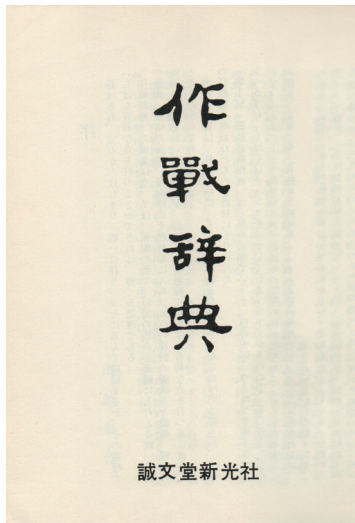 作戰辞典
誠文堂新光社